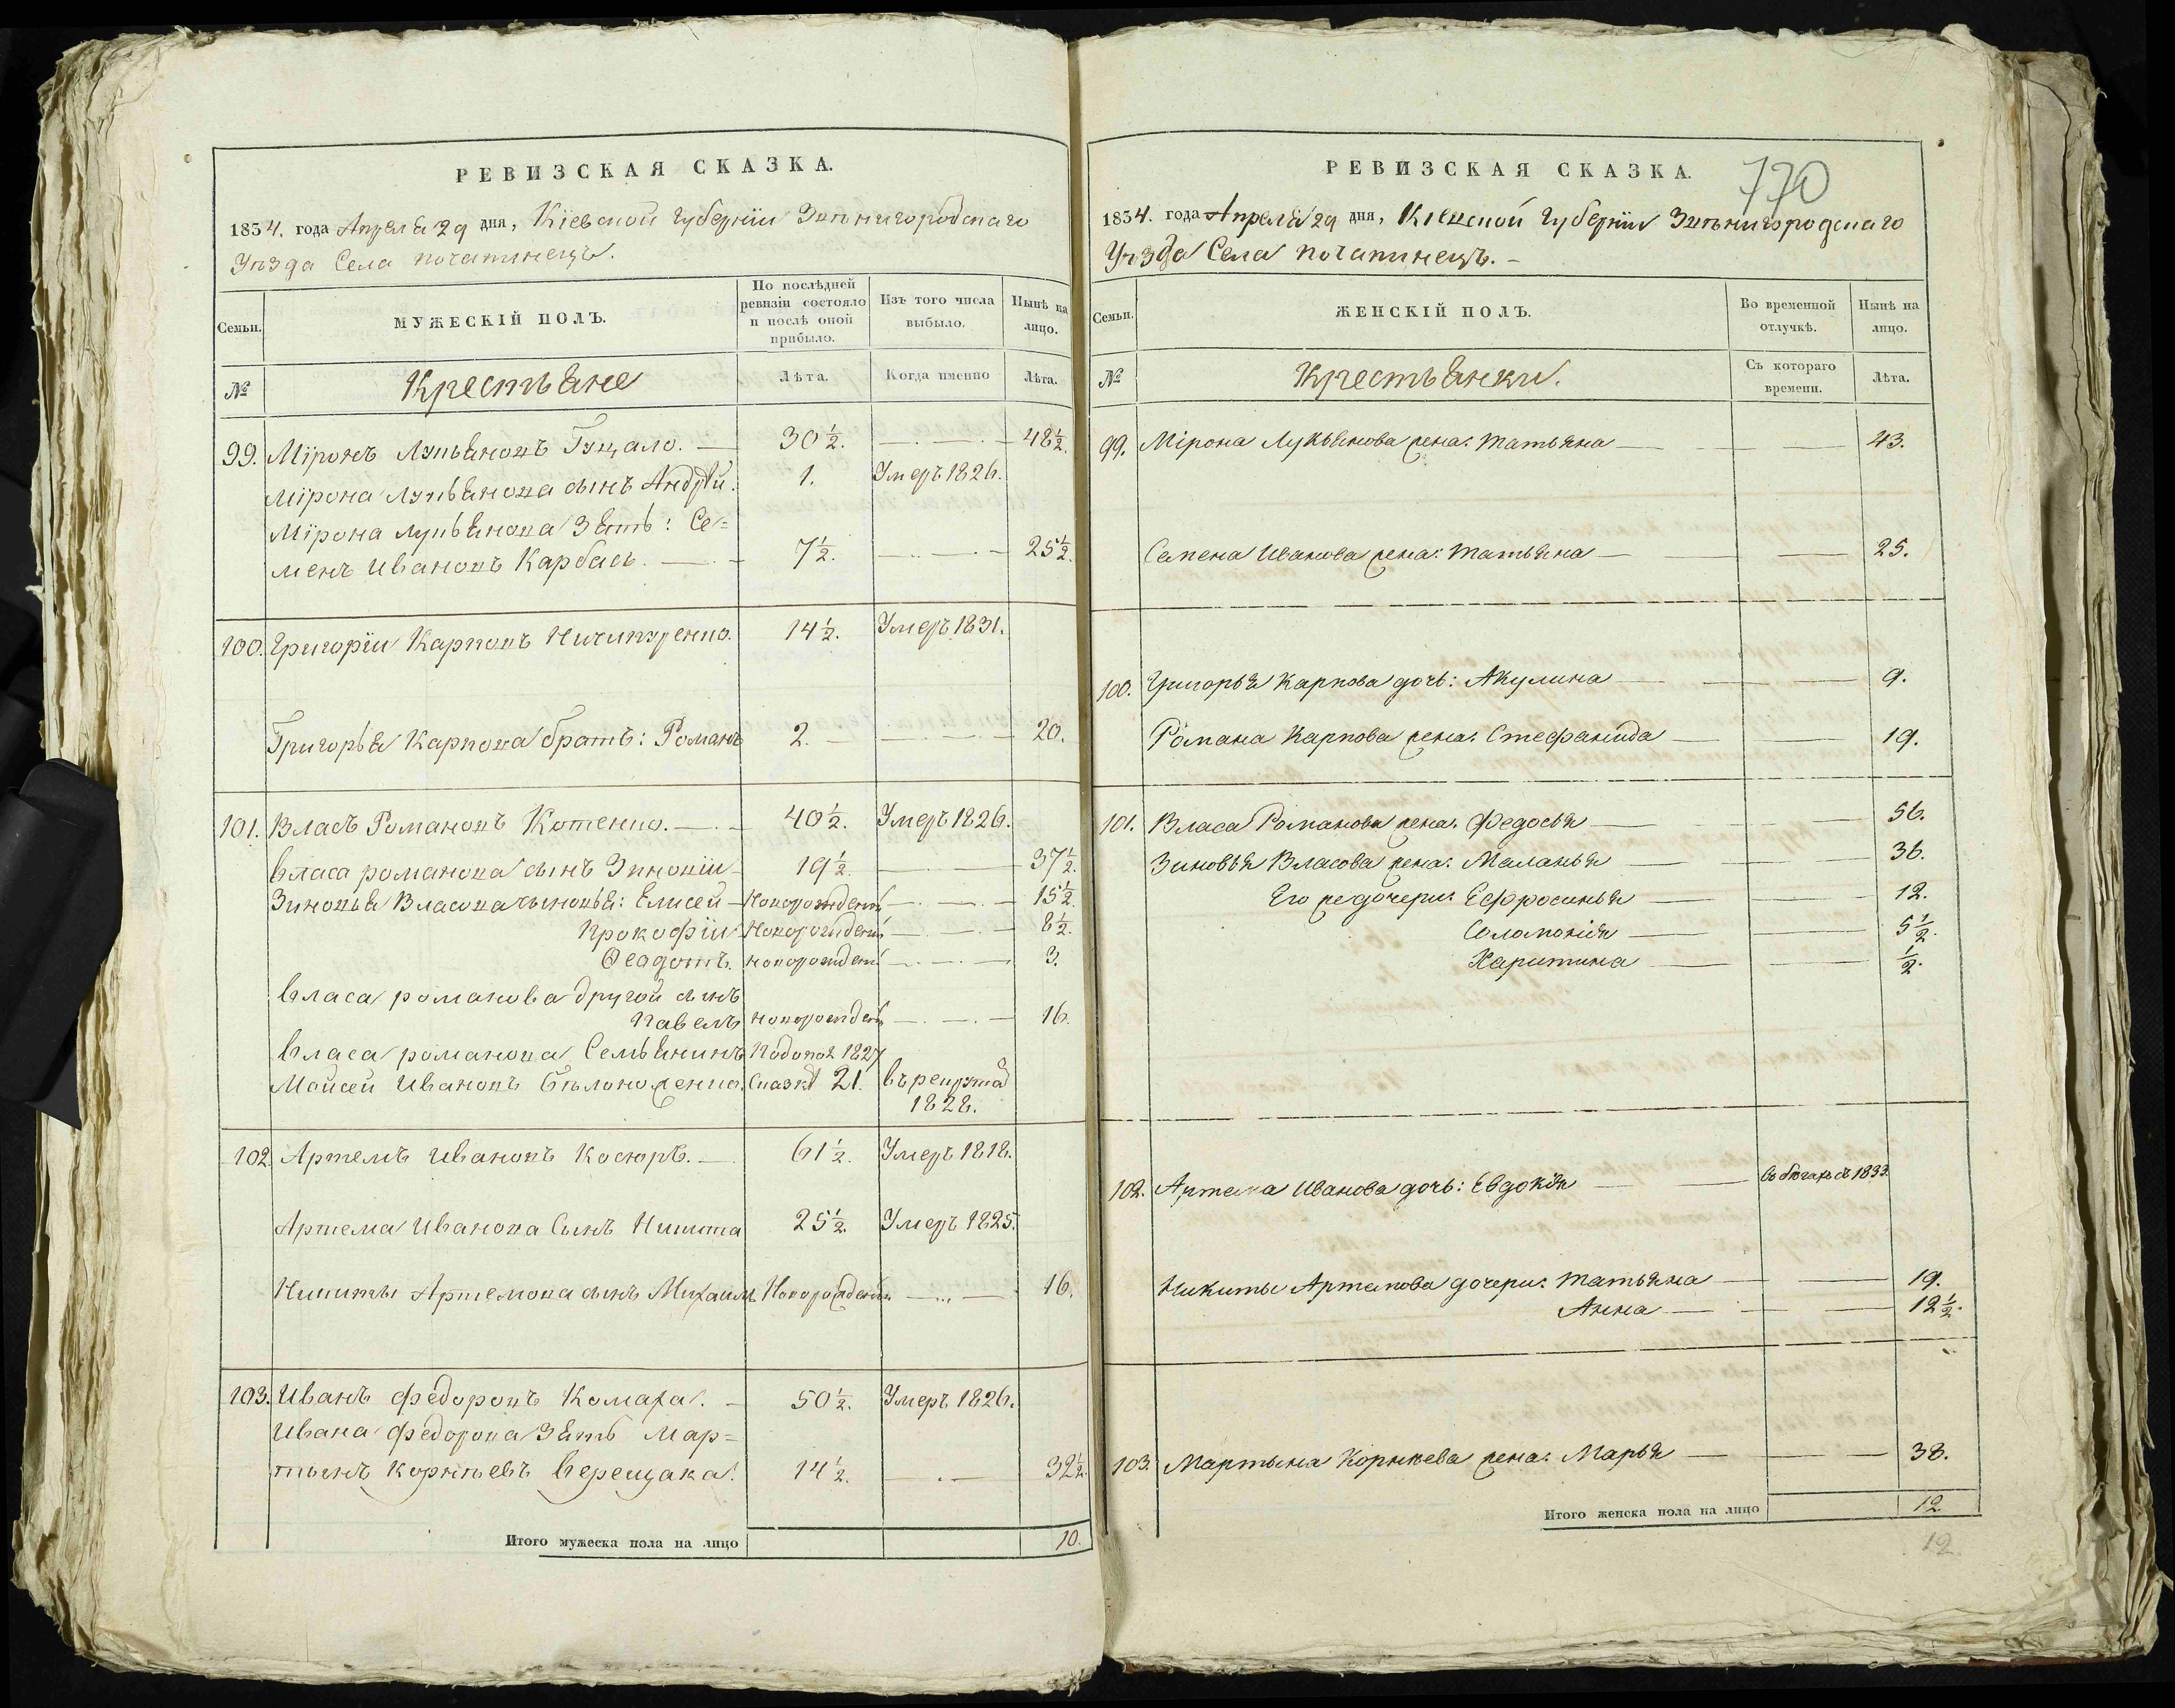 РЕВИЗСКАЯ СКАЗКА.
1834. года Апреля 29 дня, Кіевской Губерніи Звѣнигородскаго
Уѣзда Села Почапинецъ.
Семьи.
МУЖЕСКІЙ ПОЛЪ.
По послѣдней ревизіи состояло и послѣ оной прибыло.
Изъ того числа выбыло.
Нынѣ на лицо.
№
Крестьяне
Лѣта.
Когда именно
Лѣта.
99. Міронъ Лукьяновъ Гуцало. 30 ½. 48 ½.
Мірона Лукьянова сынъ Андрѣй. 1. Умеръ 1826.
Мірона Лукьянова Зять: Се=
менъ Ивановъ Карбась. 7 ½. 25 ½.
100. Григорій Карповъ Ничипуренко. 14 ½. Умеръ 1831.
Григорья Карпова братъ: Романъ 2. 20.
101. Власъ Романовъ Котенко. 40 ½. Умеръ 1826.
Власа Романова сынъ Зиновій 19 ½. 37 ½.
Зиновья Власова сыновья: Елисей Новорожденъ 15 ½.
Прокофій Новорожденъ 8 ½.
Ѳеадотъ. Новорожден. 3.
Власа Романова другой сынъ
Павелъ Новорожденъ 16.
Власа Романова Семьянинъ 1827
Мойсей Ивановъ Сказкѣ 21. въ рекруты
1828.
102. Артемъ Ивановъ Косюръ. 61 ½. Умеръ 1818.
Артема Иванова Сынъ Никита 25 ½. Умеръ 1825.
Никиты Артемова сынъ Михаилъ Новорожденъ 16.
103. Иванъ Федоровъ Комаха. 50 ½. Умеръ 1826.
Ивана Федорова Зять Мар=
тынъ Корнѣевъ Верещака. 14 ½. 32 ½.
Итого мужеска пола на лицо 10.
РЕВИЗСКАЯ СКАЗКА.
770
1834. года Апреля 29 дня, Кіевской Губерніи Звѣнигородскаго
Уѣзда Села Почапинецъ.
Семьи.
ЖЕНСКІЙ ПОЛЪ.
Во временной отлучкѣ.
Нынѣ на лицо.
№
Крестьянки.
Съ котораго времени.
Лѣта.
99. Мірона Лукьянова жена: Татьяна 43.
Семена Иванова жена: Татьяна 25.
100. Григорья Карпова дочь: Акулина 9.
Романа Карпова жена: Стефанида 19.
101. Власа Романова жена: Федосья 56.
Зиновья Власова жена: Маланья 36.
Его же дочери: Ефросинья 12.
Соломонія 5 ½.
Харитина ½.
102. Артема Иванова дочь: Евдокія въ бѣгахъ съ 1833.
Никиты Артемова дочери: Татьяна 19.
Анна 12 ½.
103. Мартына Корнѣева жена: Марья 38.
Итого женска пола на лицо 12
12